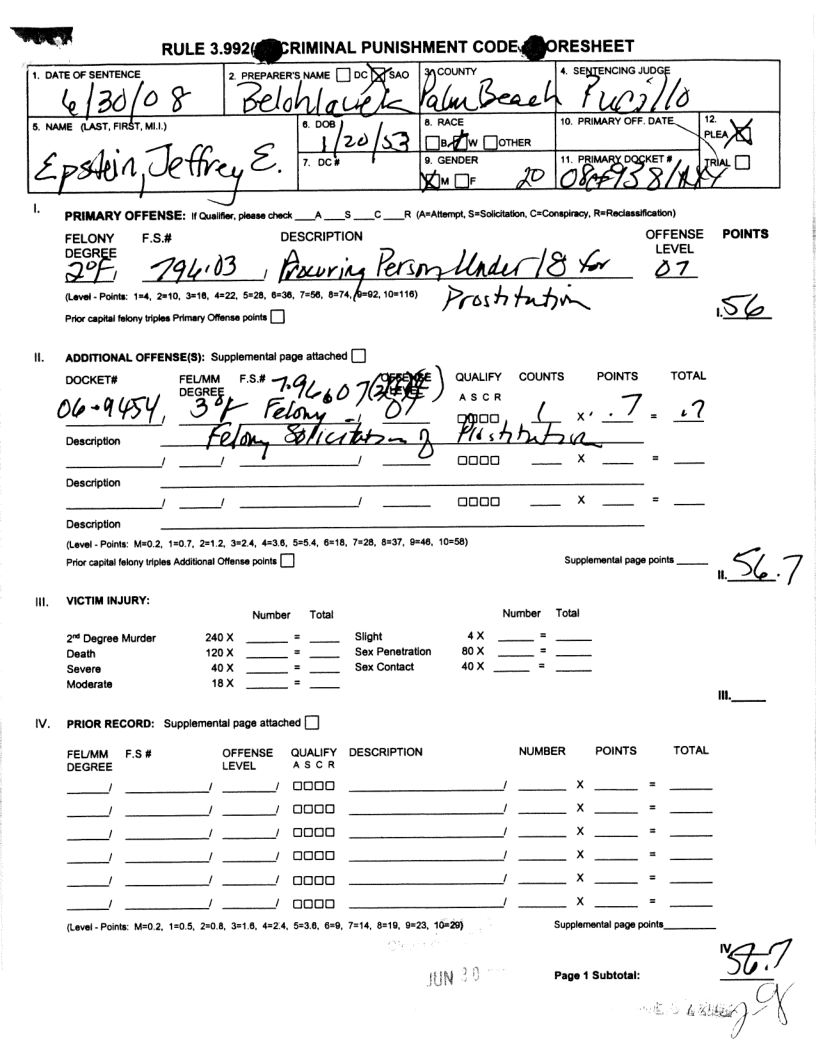 RULE 3.992( CRIMINAL PUNISHMENT CODE ORESHEET
1. DATE OF SENTENCE
6/30/08
2. PREPARER'S NAME ☐ DC ☒ SAO
Belohlavek
3. COUNTY
Palm Beach
4. SENTENCING JUDGE
Pucillo
5. NAME (LAST, FIRST, M.I.)
Epstein, Jeffrey E.
6. DOB
1/20/53
7. DC#
8. RACE
☐ B ☒ W ☐ OTHER
9. GENDER
☒ M ☐ F
10. PRIMARY OFF. DATE
11. PRIMARY DOCKET #
12.
PLEA ☒
TRIAL ☐
I. PRIMARY OFFENSE: If Qualifier, please check ___A ___S ___C ___R (A=Attempt, S=Solicitation, C=Conspiracy, R=Reclassification)
FELONY DEGREE F.S.# DESCRIPTION OFFENSE LEVEL POINTS
2°F, 796.03, Procuring Person Under 18 for 07
Prostitution
(Level - Points: 1=4, 2=10, 3=16, 4=22, 5=28, 6=36, 7=56, 8=74, 9=92, 10=116)
Prior capital felony triples Primary Offense points ☐ I. 56
II. ADDITIONAL OFFENSE(S): Supplemental page attached ☐
DOCKET# FEL/MM DEGREE F.S.# OFFENSE LEVEL QUALIFY A S C R COUNTS POINTS TOTAL
06-9454, 3°F Felony 796.07 ☐☐☐☐ 1 x .7 = .7
Description Felony Solicitation of Prostitution
___/ ___/ ___/ ___ ☐☐☐☐ ___ X ___ = ___
Description
___/ ___/ ___/ ___ ☐☐☐☐ ___ X ___ = ___
Description
(Level - Points: M=0.2, 1=0.7, 2=1.2, 3=2.4, 4=3.6, 5=5.4, 6=18, 7=28, 8=37, 9=46, 10=58)
Prior capital felony triples Additional Offense points ☐ Supplemental page points ___
II. 56.7
III. VICTIM INJURY:
Number Total Number Total
2nd Degree Murder 240 X ___ = ___ Slight 4 X ___ = ___
Death 120 X ___ = ___ Sex Penetration 80 X ___ = ___
Severe 40 X ___ = ___ Sex Contact 40 X ___ = ___
Moderate 18 X ___ = ___
III. ___
IV. PRIOR RECORD: Supplemental page attached ☐
FEL/MM DEGREE F.S # OFFENSE LEVEL QUALIFY A S C R DESCRIPTION NUMBER POINTS TOTAL
___/ ___/ ___/ ☐☐☐☐ ___/ ___ X ___ = ___
___/ ___/ ___/ ☐☐☐☐ ___/ ___ X ___ = ___
___/ ___/ ___/ ☐☐☐☐ ___/ ___ X ___ = ___
___/ ___/ ___/ ☐☐☐☐ ___/ ___ X ___ = ___
___/ ___/ ___/ ☐☐☐☐ ___/ ___ X ___ = ___
___/ ___/ ___/ ☐☐☐☐ ___/ ___ X ___ = ___
(Level - Points: M=0.2, 1=0.5, 2=0.8, 3=1.6, 4=2.4, 5=3.6, 6=9, 7=14, 8=19, 9=23, 10=29) Supplemental page points___
JUN 30 Page 1 Subtotal: IV. 56.7